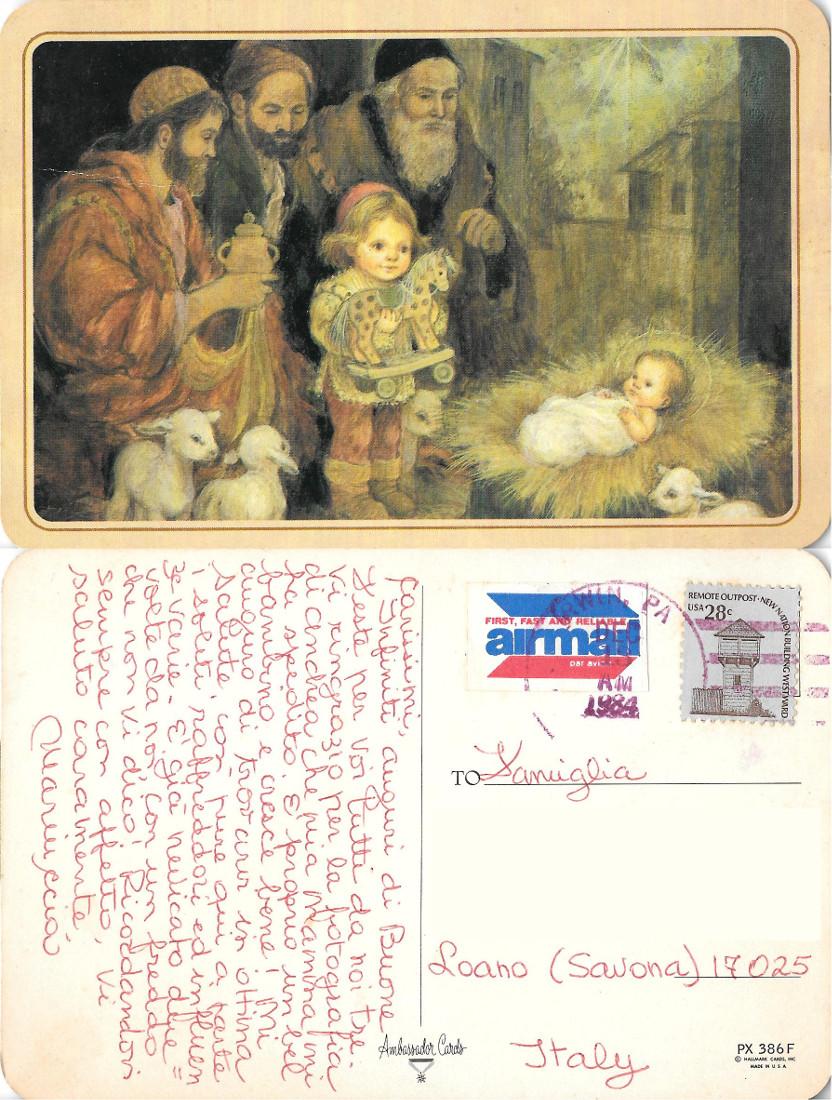 Carissimi,
Infiniti auguri di Buone
Feste per voi tutti da noi tre.
Vi ringrazio per la fotografia
di Andrea che mia mamma mi
ha spedito. È proprio un bel
bambino e cresce bene! Mi
auguro di trovarvi in ottima
salute, con pure qui a parte
i soliti raffreddori ed influen
ze varie. È già nevicato due =
volte da noi, con un freddo
che non vi dico! Ricordandovi
sempre con affetto, vi
saluto caramente
Mariuccia
FIRST, FAST AND RELIABLE
airmail
par avion
IRWIN, PA
DEC
AM
1984
REMOTE OUTPOST • NEW NATION BUILDING WESTWARD
USA 28c
TO Famiglia
Loano (Savona) 17025
Italy
Ambassador Cards
PX 386 F
© HALLMARK CARDS, INC
MADE IN U.S.A.